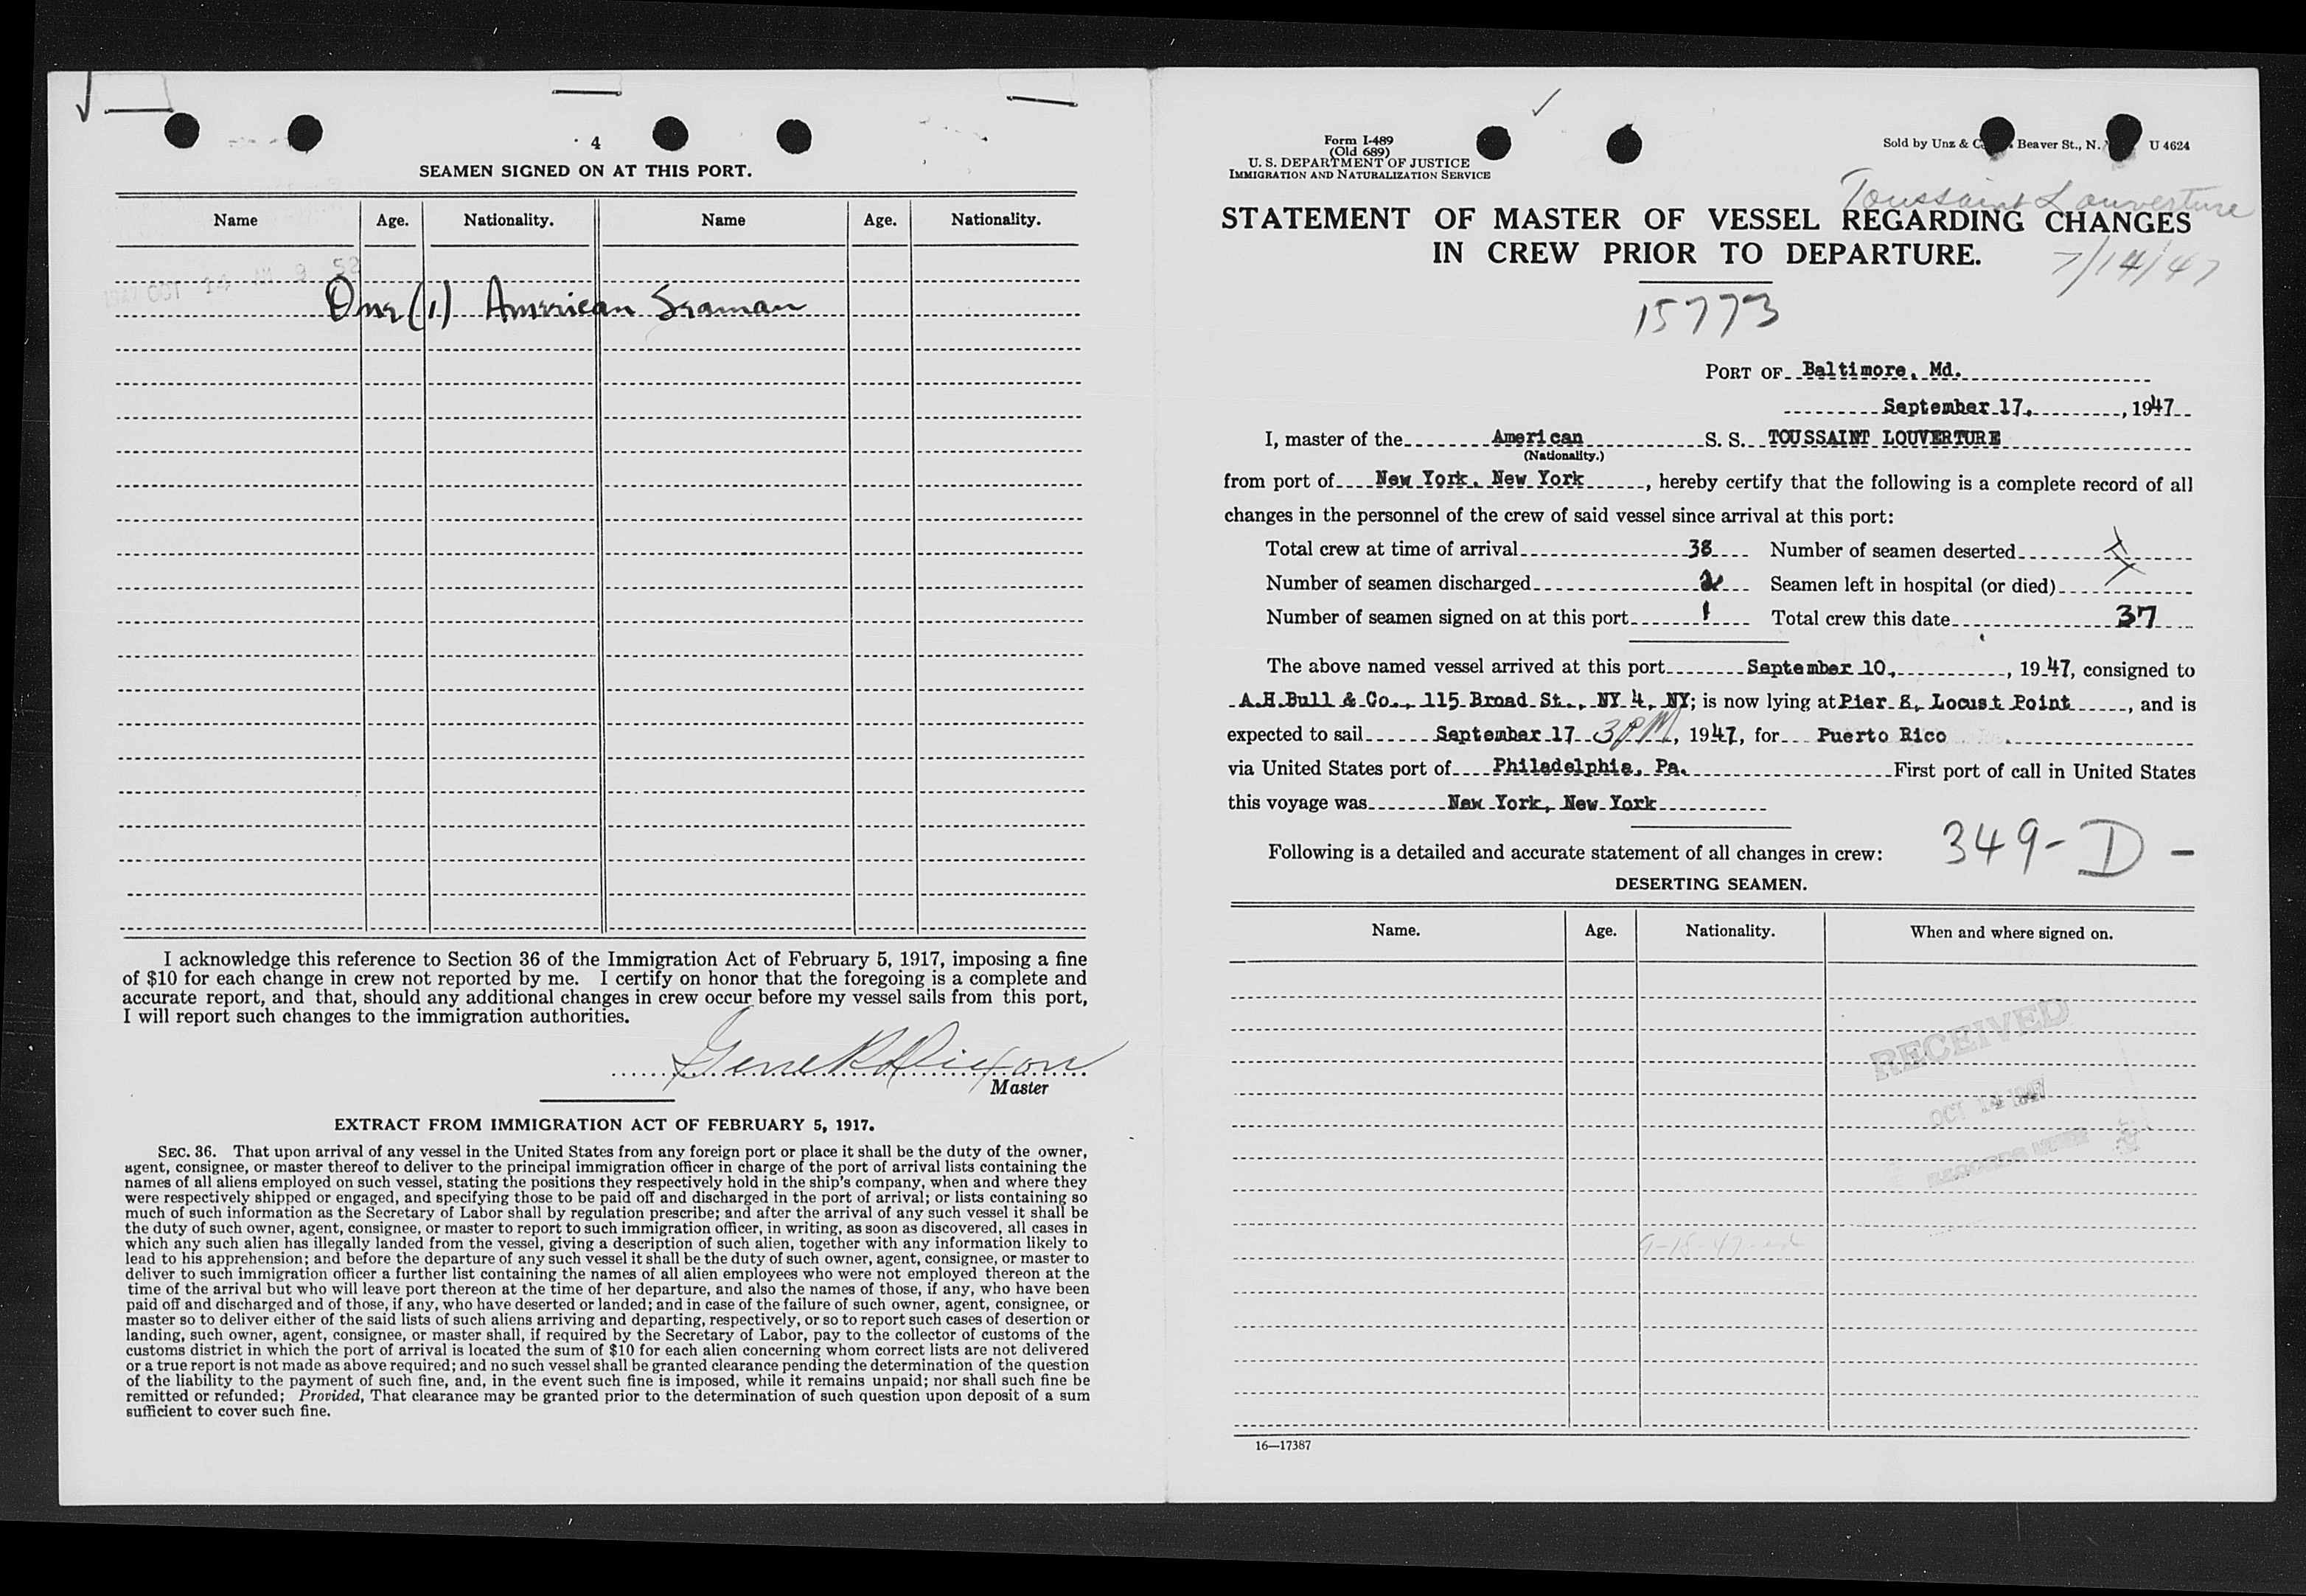 4
SEAMEN SIGNED ON AT THIS PORT.
Name Age. Nationality. Name Age. Nationality.
1947 OCT 14 AM 9 52
One (1) American Seaman
I acknowledge this reference to Section 36 of the Immigration Act of February 5, 1917, imposing a fine
of $10 for each change in crew not reported by me. I certify on honor that the foregoing is a complete and
accurate report, and that, should any additional changes in crew occur before my vessel sails from this port,
I will report such changes to the immigration authorities.
Gene R Dixon
Master
EXTRACT FROM IMMIGRATION ACT OF FEBRUARY 5, 1917.
SEC. 36. That upon arrival of any vessel in the United States from any foreign port or place it shall be the duty of the owner,
agent, consignee, or master thereof to deliver to the principal immigration officer in charge of the port of arrival lists containing the
names of all aliens employed on such vessel, stating the positions they respectively hold in the ship's company, when and where they
were respectively shipped or engaged, and specifying those to be paid off and discharged in the port of arrival; or lists containing so
much of such information as the Secretary of Labor shall by regulation prescribe; and after the arrival of any such vessel it shall be
the duty of such owner, agent, consignee, or master to report to such immigration officer, in writing, as soon as discovered, all cases in
which any such alien has illegally landed from the vessel, giving a description of such alien, together with any information likely to
lead to his apprehension; and before the departure of any such vessel it shall be the duty of such owner, agent, consignee, or master to
deliver to such immigration officer a further list containing the names of all alien employees who were not employed thereon at the
time of the arrival but who will leave port thereon at the time of her departure, and also the names of those, if any, who have been
paid off and discharged and of those, if any, who have deserted or landed; and in case of the failure of such owner, agent, consignee, or
master so to deliver either of the said lists of such aliens arriving and departing, respectively, or so to report such cases of desertion or
landing, such owner, agent, consignee, or master shall, if required by the Secretary of Labor, pay to the collector of customs of the
customs district in which the port of arrival is located the sum of $10 for each alien concerning whom correct lists are not delivered
or a true report is not made as above required; and no such vessel shall be granted clearance pending the determination of the question
of the liability to the payment of such fine, and, in the event such fine is imposed, while it remains unpaid; nor shall such fine be
remitted or refunded; Provided, That clearance may be granted prior to the determination of such question upon deposit of a sum
sufficient to cover such fine.
Form I-489
(Old 689)
U. S. DEPARTMENT OF JUSTICE
IMMIGRATION AND NATURALIZATION SERVICE
Sold by Unz & C Beaver St., N. U 4624
Toussaint Louverture
STATEMENT OF MASTER OF VESSEL REGARDING CHANGES
IN CREW PRIOR TO DEPARTURE.
7/14/47
15773
PORT OF Baltimore, Md.
September 17, , 1947
I, master of the American S. S. TOUSSAINT LOUVERTURE
(Nationality.)
from port of New York, New York , hereby certify that the following is a complete record of all
changes in the personnel of the crew of said vessel since arrival at this port:
Total crew at time of arrival 38 Number of seamen deserted
Number of seamen discharged 2 Seamen left in hospital (or died)
Number of seamen signed on at this port 1 Total crew this date 37
The above named vessel arrived at this port September 10, , 1947, consigned to
A.H.Bull & Co., 115 Broad St., NY 4, NY; is now lying at Pier 8, Locust Point , and is
expected to sail September 17 3PM, 1947, for Puerto Rico
via United States port of Philadelphia, Pa. First port of call in United States
this voyage was New York, New York
Following is a detailed and accurate statement of all changes in crew:
349-D -
DESERTING SEAMEN.
Name. Age. Nationality. When and where signed on.
RECEIVED
OCT 14 1947
9-18-47
16—17387